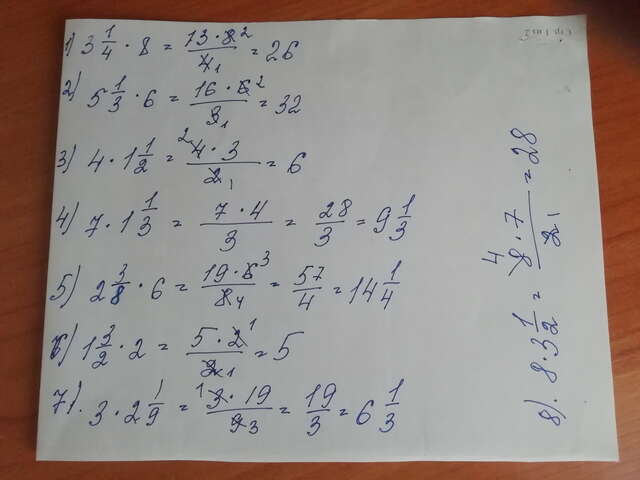 1) 3 1/4 · 8 = 13·8 2/4 1 = 26
2) 5 1/3 · 6 = 16·6 2/3 1 = 32
3) 4 · 1 1/2 = 2 4·3/2 1 = 6
4) 7 · 1 1/3 = 7·4/3 = 28/3 = 9 1/3
5) 2 3/8 · 6 = 19·6 3/8 4 = 57/4 = 14 1/4
6) 1 3/2 · 2 = 5·2 1/2 1 = 5
7). 3 · 2 1/9 = 1 3·19/9 3 = 19/3 = 6 1/3
8). 8 · 3 1/2 = 4 8·7/2 1 = 28